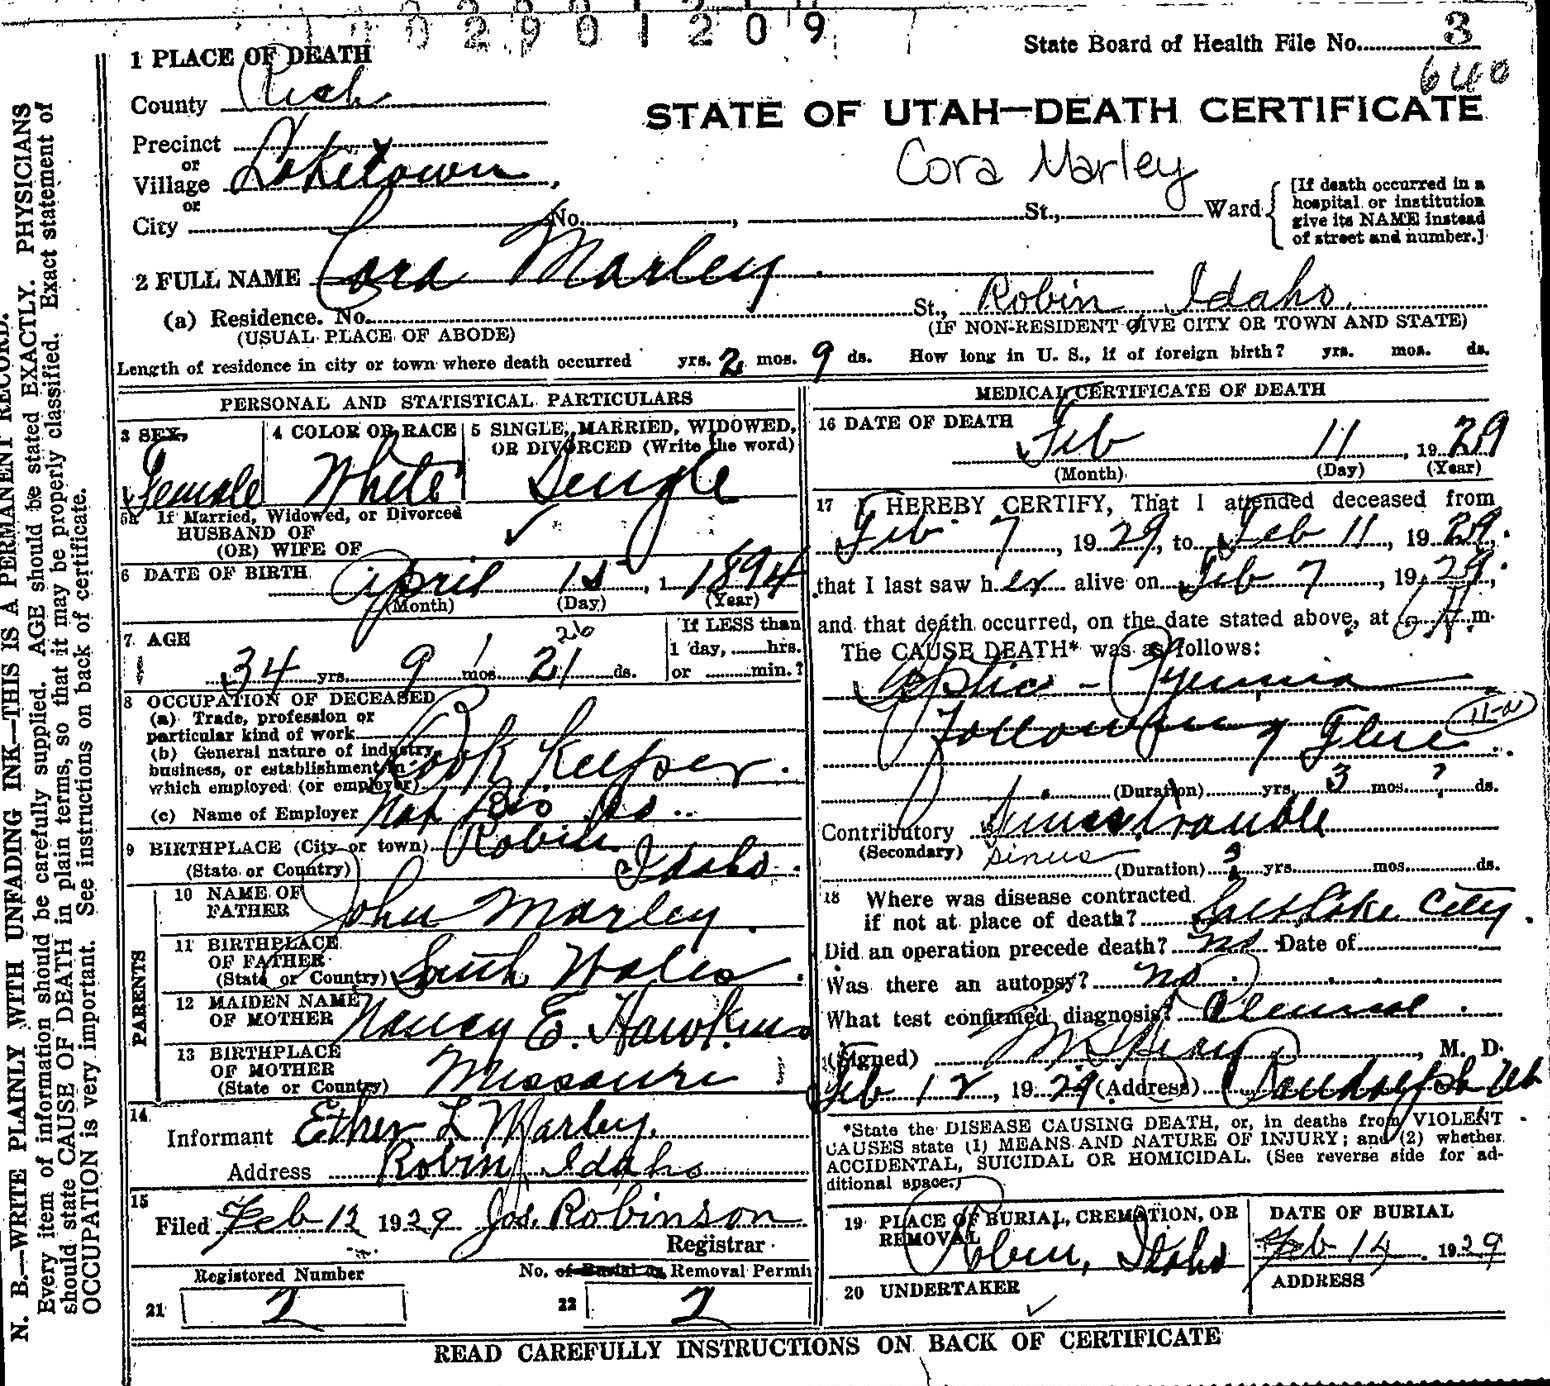 0 2 9 0 1 2 0 9
State Board of Health File No. 3
640
1 PLACE OF DEATH
County Rich
STATE OF UTAH—DEATH CERTIFICATE
Precinct
or
Village Laketown,
Cora Marley
or
City No. , St., Ward
[If death occurred in a
hospital or institution
give its NAME instead
of street and number.]
2 FULL NAME Cora Marley
(a) Residence. No. St., Robin Idaho.
(USUAL PLACE OF ABODE) (IF NON-RESIDENT GIVE CITY OR TOWN AND STATE)
Length of residence in city or town where death occurred yrs. 2 mos. 9 ds. How long in U. S., if of foreign birth? yrs. mos. ds.
PERSONAL AND STATISTICAL PARTICULARS
3 SEX, 4 COLOR OR RACE 5 SINGLE, MARRIED, WIDOWED,
OR DIVORCED (Write the word)
Female White Single
5a If Married, Widowed, or Divorced
HUSBAND OF
(OR) WIFE OF
6 DATE OF BIRTH April 15, 1 1894
(Month) (Day) (Year)
7 AGE 26 If LESS than
1 day, hrs.
34 yrs. 9 mos 21 ds. or min.?
8 OCCUPATION OF DECEASED
(a) Trade, profession or
particular kind of work
(b) General nature of industry,
business, or establishment in
which employed (or employer) Book Keeper.
(c) Name of Employer Nat Bis Co..
9 BIRTHPLACE (City or town) Robin
(State or Country) Idaho.
PARENTS
10 NAME OF
FATHER John Marley.
11 BIRTHPLACE
OF FATHER
(State or Country) South Wales.
12 MAIDEN NAME
OF MOTHER Nancy E. Hawkins
13 BIRTHPLACE
OF MOTHER
(State or Country) Missouri
14
Informant Ether L Marley.
Address Robin, Idaho
15
Filed Feb 12 1929 Jos. Robinson
Registrar
Registered Number No. of Burial or Removal Permit
21 2 22 2
MEDICAL CERTIFICATE OF DEATH
16 DATE OF DEATH
Feb 11, 1929
(Month) (Day) (Year)
17 I HEREBY CERTIFY, That I attended deceased from
Feb 7, 1929, to Feb 11, 1929.
that I last saw her alive on Feb 7, 1929.,
and that death occurred, on the date stated above, at 6 A. m.
The CAUSE DEATH* was as follows:
Septic - Pyemia
Following Flue 11-a
(Duration) yrs. 3 mos. ? ds.
Contributory Sinus trouble
(Secondary) sinus
(Duration) yrs. mos. ds.
18 Where was disease contracted
if not at place of death? Salt Lake City.
Did an operation precede death? no Date of
Was there an autopsy? no.
What test confirmed diagnosis? Clinical.
(Signed) , M. D.
Feb 12, 1929. (Address) Randolph Ut
*State the DISEASE CAUSING DEATH, or, in deaths from VIOLENT
CAUSES state (1) MEANS AND NATURE OF INJURY; and (2) whether
ACCIDENTAL, SUICIDAL OR HOMICIDAL. (See reverse side for ad-
ditional space.)
19 PLACE OF BURIAL, CREMATION, OR
REMOVAL
Robin, Idaho
DATE OF BURIAL
Feb 14. 1929
20 UNDERTAKER
ADDRESS
READ CAREFULLY INSTRUCTIONS ON BACK OF CERTIFICATE
N. B.—WRITE PLAINLY WITH UNFADING INK—THIS IS A PERMANENT RECORD.
Every item of information should be carefully supplied. AGE should be stated EXACTLY. PHYSICIANS
should state CAUSE OF DEATH in plain terms, so that it may be properly classified. Exact statement of
OCCUPATION is very important. See instructions on back of certificate.